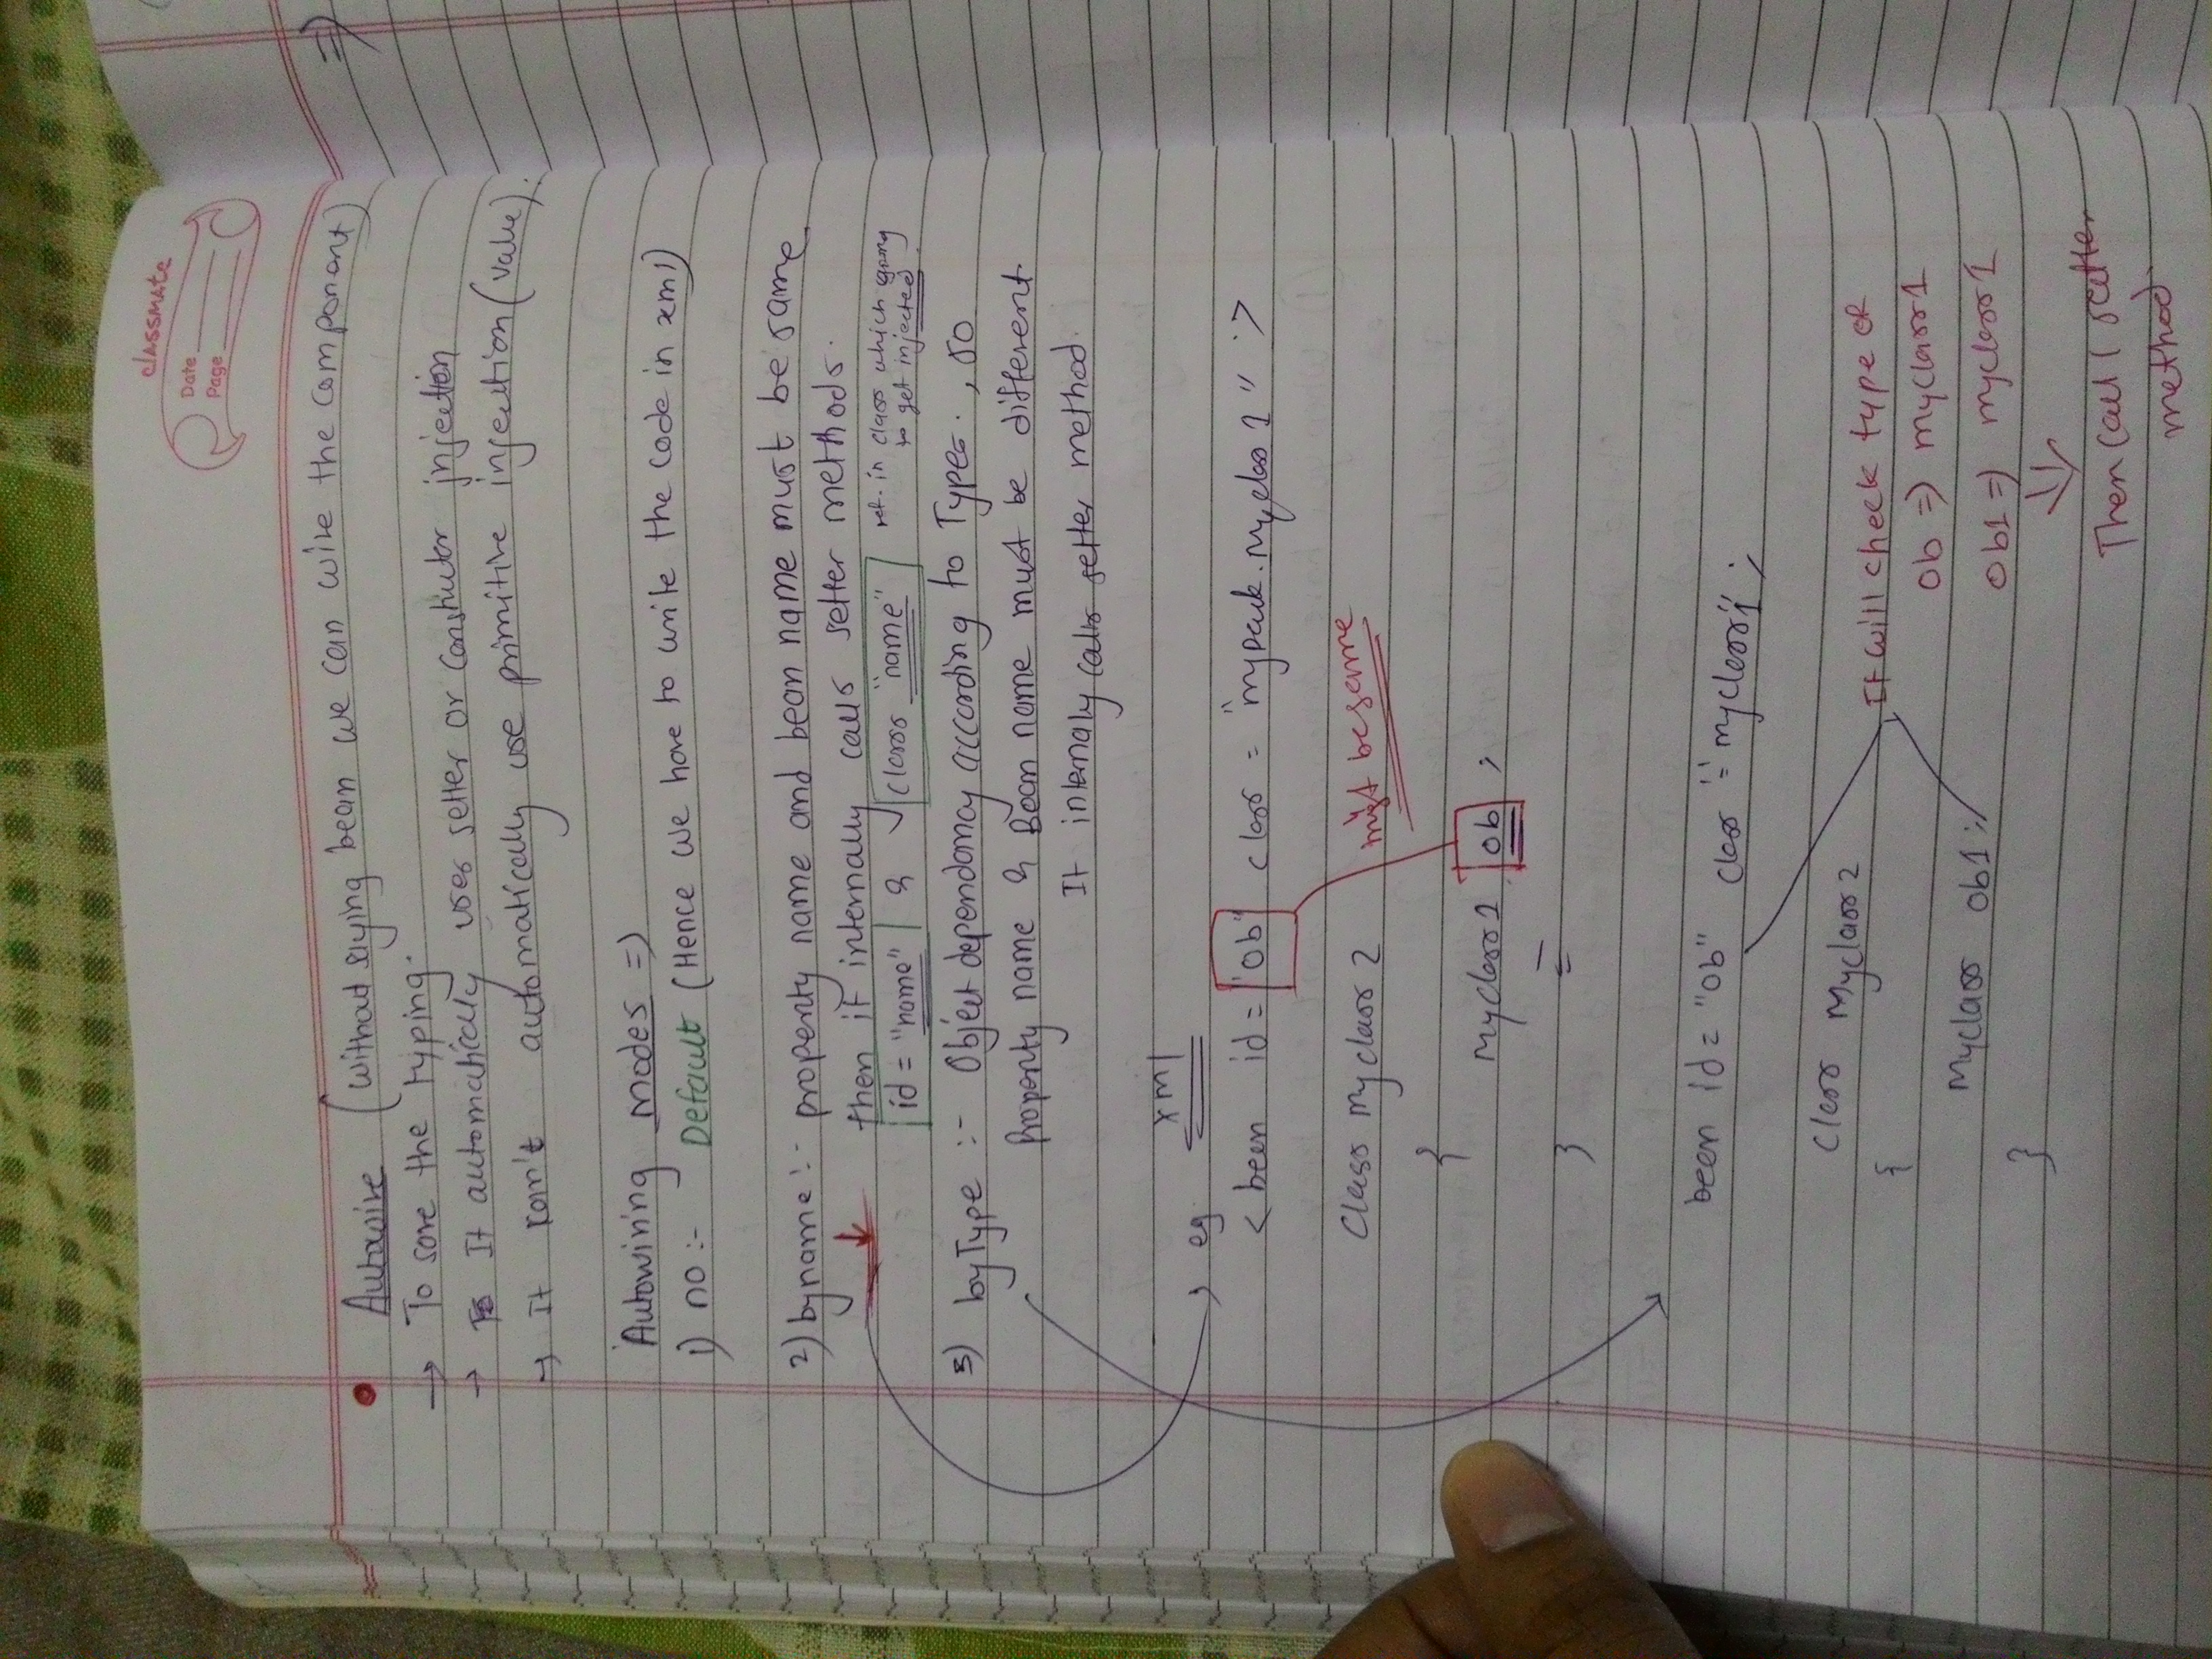 classmate
Date
Page
Autowire (without saying bean we can wire the component)
→ To save the typing.
→ It automatically uses setter or Constructor injection
→ It can't automatically use primitive injection (value).
Autowiring modes =>
1) no :- Default (Hence we have to write the code in xml)
2) byname :- property name and bean name must be same
then it internally calls setter methods.
id = "name" & class "name" ref. in class which going
to get injected
3) byType :- Object dependancy according to Types. , so
Property name & Bean name must be different.
It internaly calls setter method.
eg xml
<bean id = "ob" class = "mypack.Myclass1" >
Class myclass2 must be same
{
Myclass1 ob ;
}
bean id = "ob" class = "myclass1" ;
Class Myclass2
{ It will check type of
ob => myclass1
Myclass ob1 ;
ob1 => myclass1
}
Then call setter
method